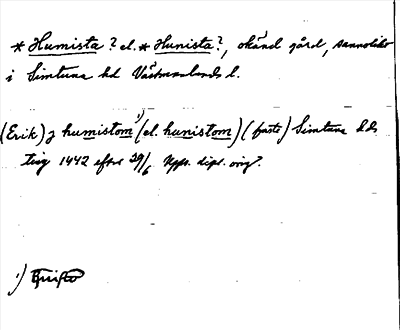 * Humista? el. * Hunista?, okänd gård, sannolikt
i Simtuna hd Västmanlands l.
(Erik) j humistom ¹) (el. hunistom) (faste) Simtuna hds
ting 1442 efter 29/6 Upps. dipl. orig?.
¹)